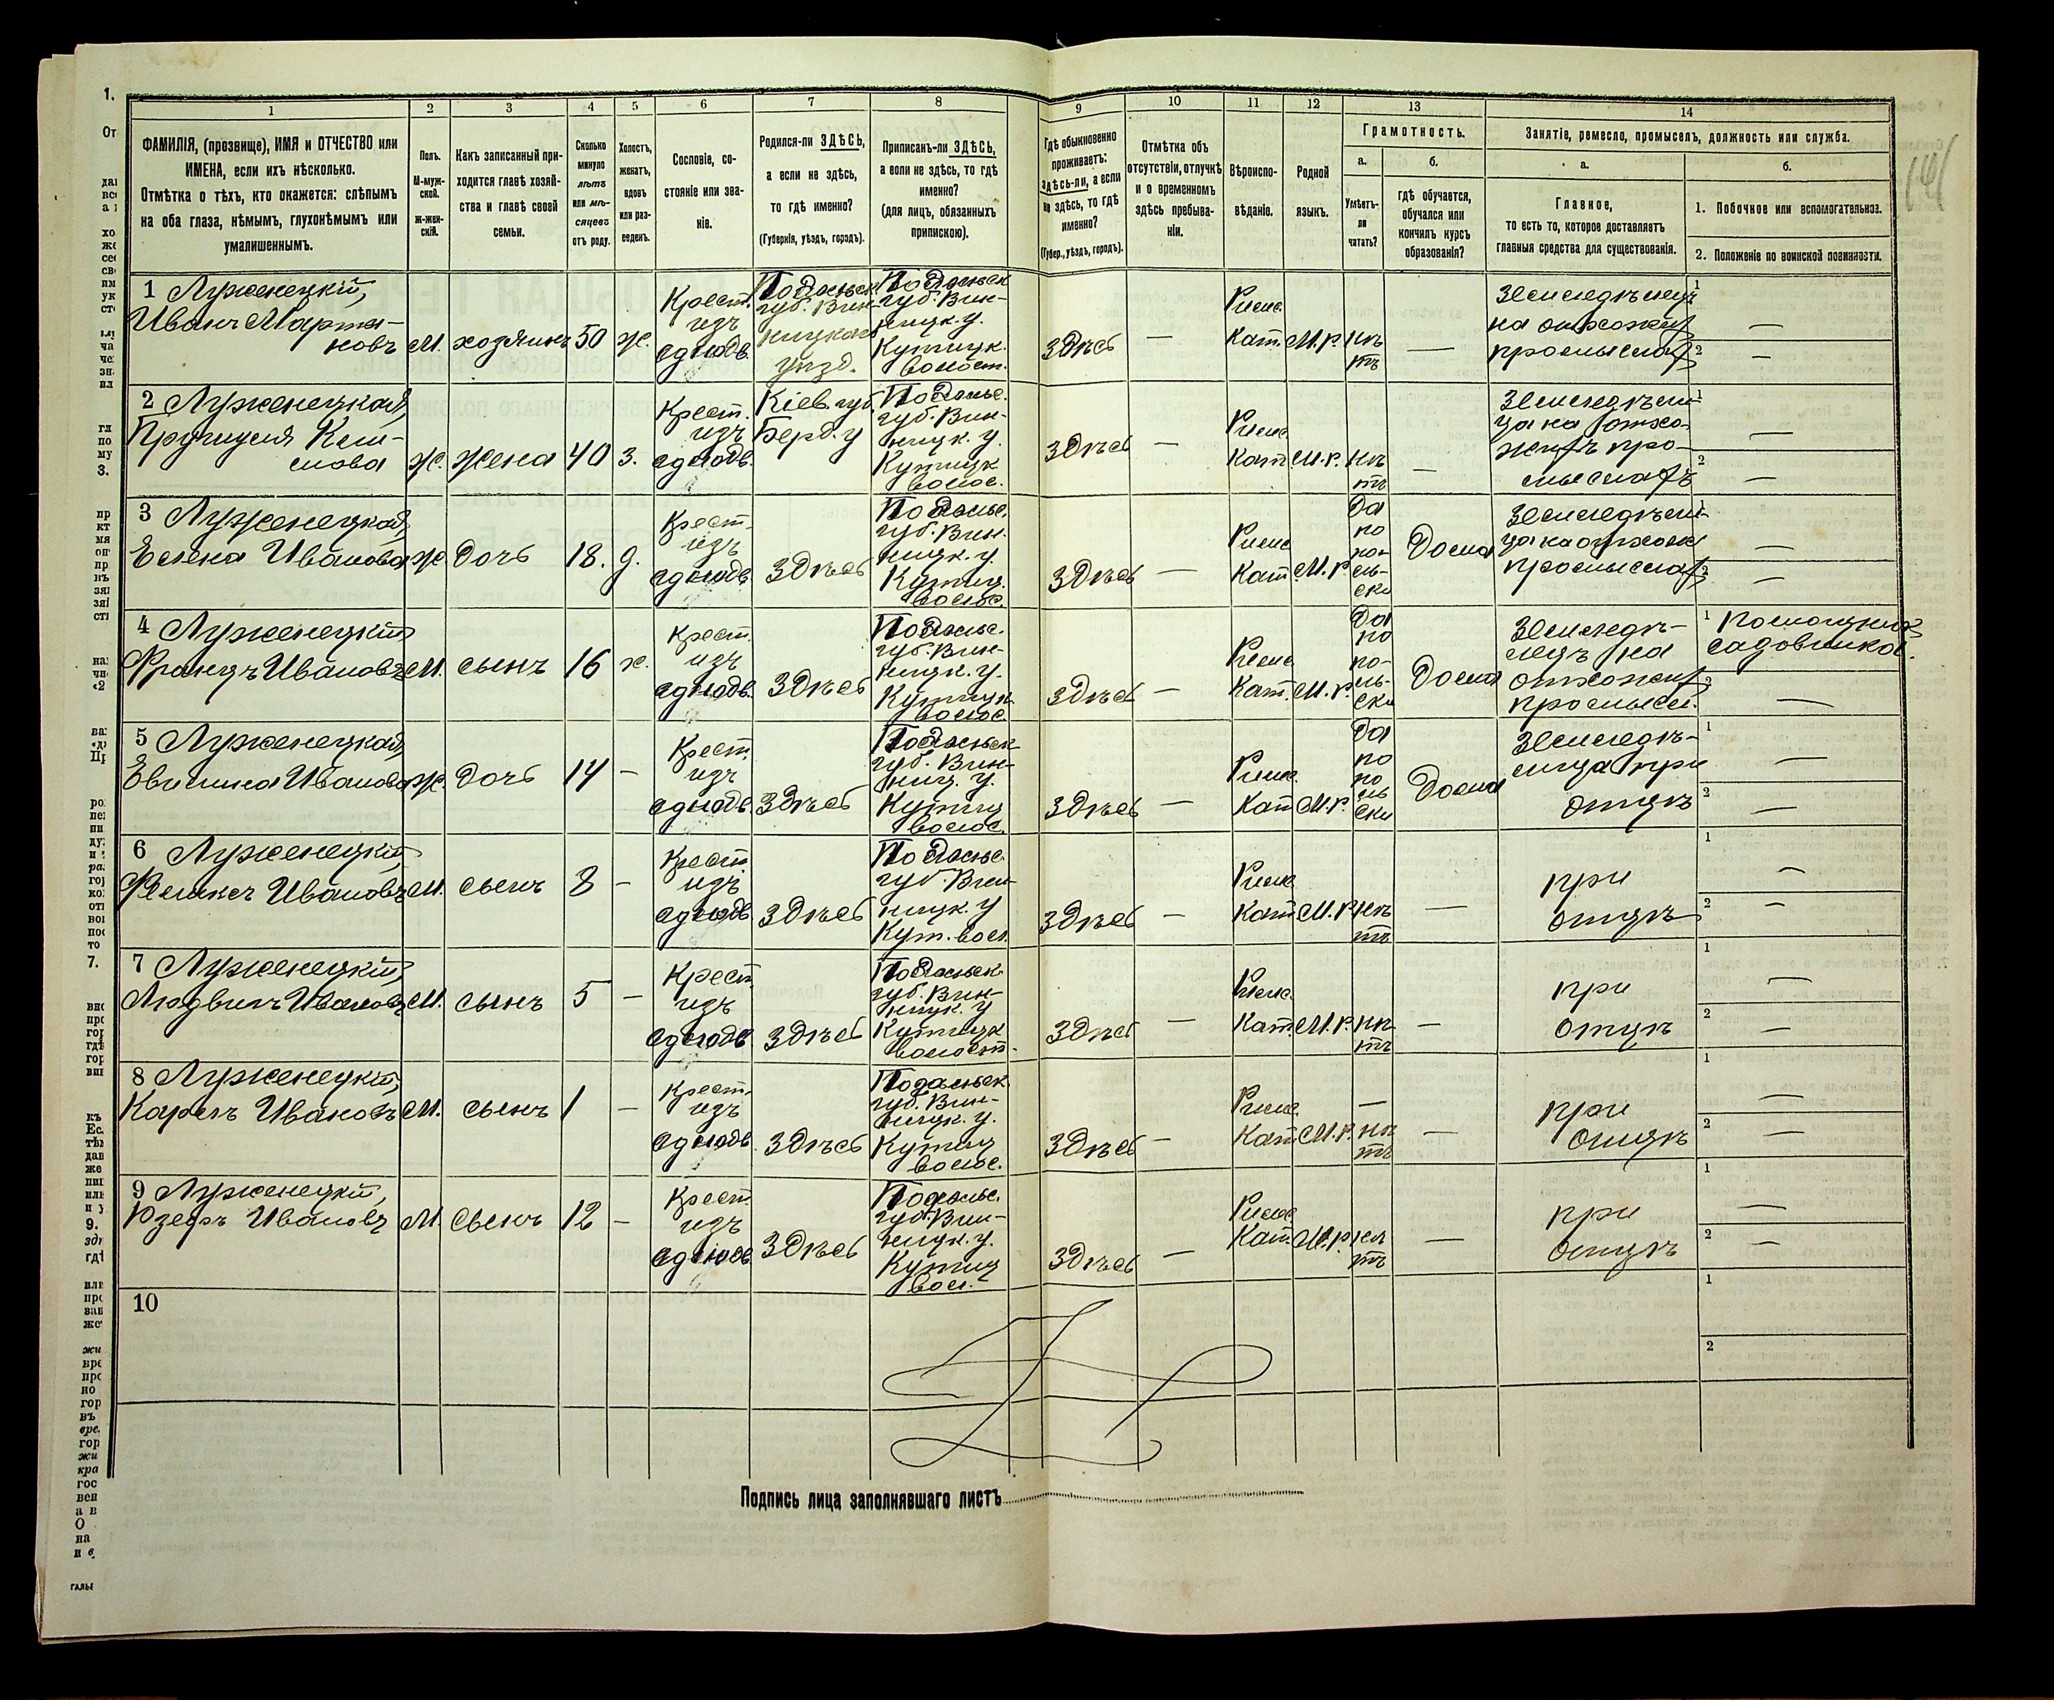 1 2 3 4 5 6 7 8 9 10 11 12 13 14
ФАМИЛІЯ, (прозвище), ИМЯ и ОТЧЕСТВО или
ИМЕНА, если ихъ нѣсколько.
Отмѣтка о тѣхъ, кто окажется: слѣпымъ
на оба глаза, нѣмымъ, глухонѣмымъ или
умалишеннымъ.
Полъ.
М-муж-
ской.
Ж-жен-
скій.
Какъ записанный при-
ходится главѣ хозяй-
ства и главѣ своей
семьи.
Сколько
минуло
лѣтъ
или мѣ-
сяцевъ
отъ роду.
Холостъ,
женатъ,
вдовъ
или раз-
веденъ.
Сословіе, со-
стояніе или зва-
ніе.
Родился-ли ЗДѢСЬ,
а если не здѣсь,
то гдѣ именно?
(Губернія, уѣздъ, городъ).
Приписанъ-ли ЗДѢСЬ,
а если не здѣсь, то гдѣ
именно?
(для лицъ, обязанныхъ
припискою).
Гдѣ обыкновенно
проживаетъ:
здѣсь-ли, а если
не здѣсь, то гдѣ
именно?
(Губер., уѣздъ, городъ).
Отмѣтка объ
отсутствіи, отлучкѣ
и о временномъ
здѣсь пребыва-
ніи.
Вѣроиспо-
вѣданіе.
Родной
языкъ.
Грамотность.
а.
Умѣетъ-
ли
читать?
б.
гдѣ обучается,
обучался или
кончилъ курсъ
образованія?
Занятіе, ремесло, промыселъ, должность или служба.
а.
Главное,
то есть то, которое доставляетъ
главныя средства для существованія.
б.
1. Побочное или вспомогательное.
2. Положеніе по воинской повинности.
1 Луженецкій,
Иванъ Марти-
новъ
М. хозяинъ 50 ж.
Крест.
изъ
однодв.
Подольск.
губ. Вин-
ницкаго
уѣзд.
Подольск.
губ. Вин-
ницк. у.
Кутицк.
волост.
Здѣсь —
Римс.
Кат. М.р. нѣ
тъ —
Земледѣлецъ
на отхожихъ
промыслахъ
1 —
2 —
2 Луженецкая,
Ж. жена 40 з.
Крест.
изъ
однодв.
Кіев. губ.
Берд. у
Подольс.
губ. Вин-
ницк. у.
Кутицк
волос.
Здѣсь —
Римс.
Кат. М.р. нѣ
тъ —
1 —
2 —
3 Луженецкая,
Елена Иванова ж. дочь 18. д.
Крест.
изъ
однодв.
Здѣсь
Подольс.
губ. Вин-
ницк. у.
Кутиц.
волос.
Здѣсь —
Римс.
Кат. М.р.
Да
по
по-
ль-
ски
Дома
промыслах
1 —
2 —
4 Луженецкій
Францъ Ивановъ М. сынъ 16 х.
Крест.
изъ
однодв.
Здѣсь
Подольс.
губ. Вин-
ницк. у.
Кутицк
волос.
Здѣсь —
Римс.
Кат. М.р.
Да
по
по-
ль-
ски
Дома
Земледѣ-
лецъ на
отхожих
промысл.
1 помощник
садовника.
2 —
5 Луженецкая,
Евилина Иванова ж. дочь 14 —
Крест.
изъ
однодв.
Здѣсь
Подольск
губ. Вин-
ниц. у.
Кутиц
волос.
Здѣсь —
Римс.
Кат М.р.
Да
по
по
ль
ски
Дома
при
отцѣ
1 —
2 —
6 Луженецкій,
Феликсъ Ивановъ М. сынъ 8 —
Крест.
изъ
однодв.
Здѣсь
Подольс.
губ. Вин-
ницк. у
Кут. вол.
Здѣсь —
Римс.
Кат М.р. нѣ
тъ —
при
отцѣ
1 —
2 —
7 Луженецкій,
Людвигъ Ивановъ М. сынъ 5 —
Крест.
изъ
однодв.
Здѣсь
Подольск
губ. Вин-
ницк. у
Кутицк
волост.
Здѣсь —
Римс.
Кат. М.р. нѣ-
тъ —
при
отцѣ
1 —
2 —
8 Луженецкій,
Карлъ Ивановъ М. сынъ 1 —
Крест.
изъ
однодв.
Здѣсь
Подольск
губ. Вин-
ницк. у.
Кутиц
волос.
Здѣсь —
Римс.
Кат М.р. нѣ
тъ —
при
отцѣ
1 —
2 —
9 Луженецкій,
Юзефъ Ивановъ М. сынъ 12 —
Крест
изъ
однодв.
Здѣсь
Подольс.
губ. Вин-
ницк. у.
Кутиц
вол.
Здѣсь —
Римс.
Кат. М.р. нѣ
тъ —
при
отцѣ
1 —
2 —
10
1
2
Подпись лица заполнявшаго листъ